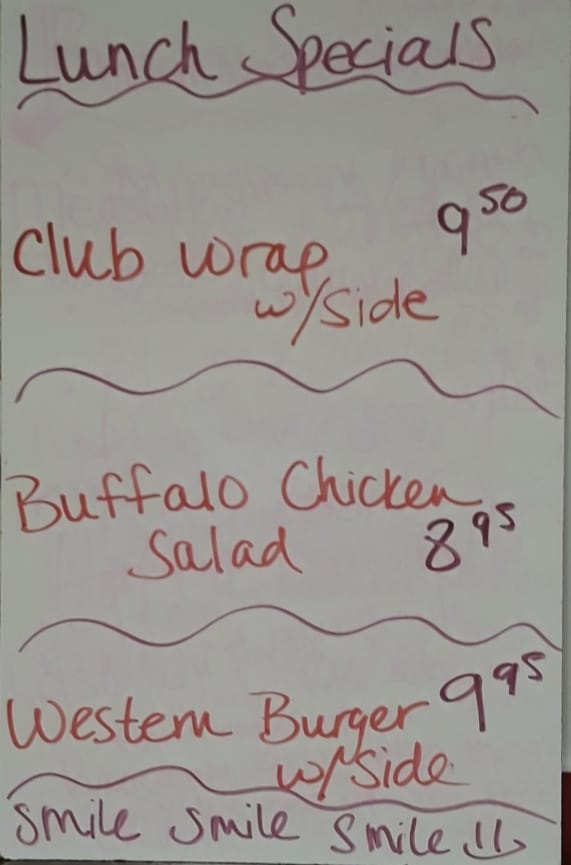 Lunch Specials
9⁵⁰
Club wrap
w/side
Buffalo Chicken
Salad 8⁹⁵
Western Burger 9⁹⁵
w/side
smile smile smile !!